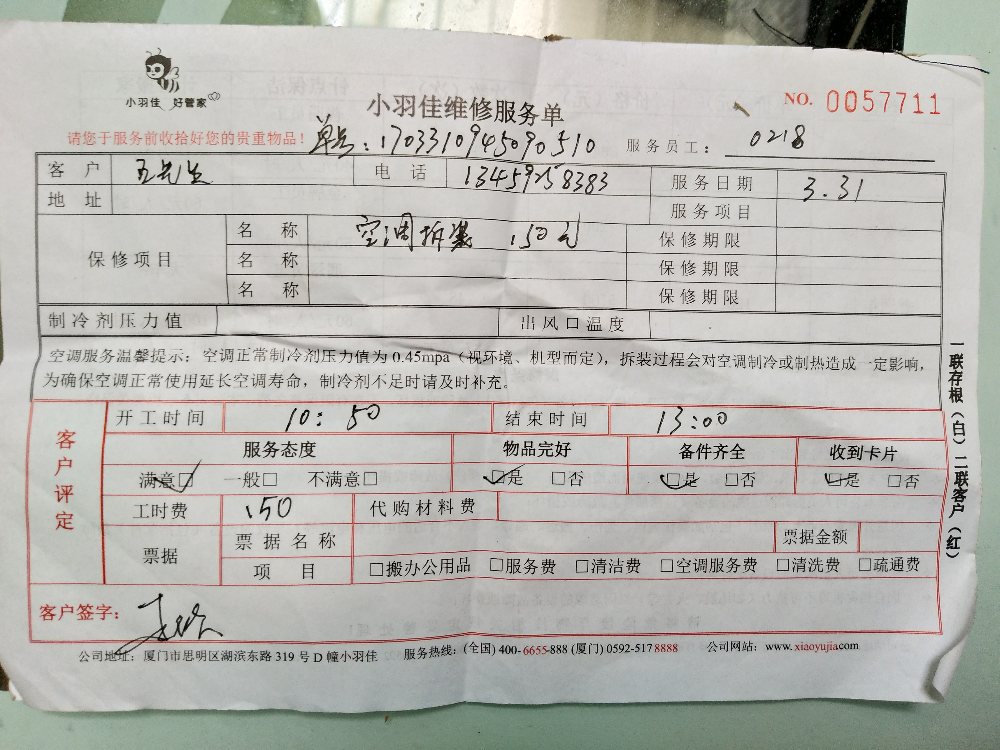 小羽佳 好管家
小羽佳维修服务单
NO. 0057711
请您于服务前收拾好您的贵重物品！
单号：1703310945090510
服务员工： 0218
客户 王先生 电话 13459258383 服务日期 3.31
地址 服务项目
保修项目 名称 空调拆装 150元 保修期限
名称 保修期限
名称 保修期限
制冷剂压力值 出风口温度
空调服务温馨提示：空调正常制冷剂压力值为 0.45mpa（视环境、机型而定），拆装过程会对空调制冷或制热造成一定影响，
为确保空调正常使用延长空调寿命，制冷剂不足时请及时补充。
客户评定
开工时间 10：50 结束时间 13:00
服务态度 物品完好 备件齐全 收到卡片
满意□ 一般□ 不满意□ □是 □否 □是 □否 □是 □否
工时费 150 代购材料费
票据 票据名称 票据金额
项目 □搬办公用品 □服务费 □清洁费 □空调服务费 □清洗费 □疏通费
客户签字：
公司地址：厦门市思明区湖滨东路 319 号 D 幢小羽佳 服务热线：(全国) 400-6655-888 (厦门) 0592-5178888 公司网站：www.xiaoyujia.com
一联存根（白）二联客户（红）